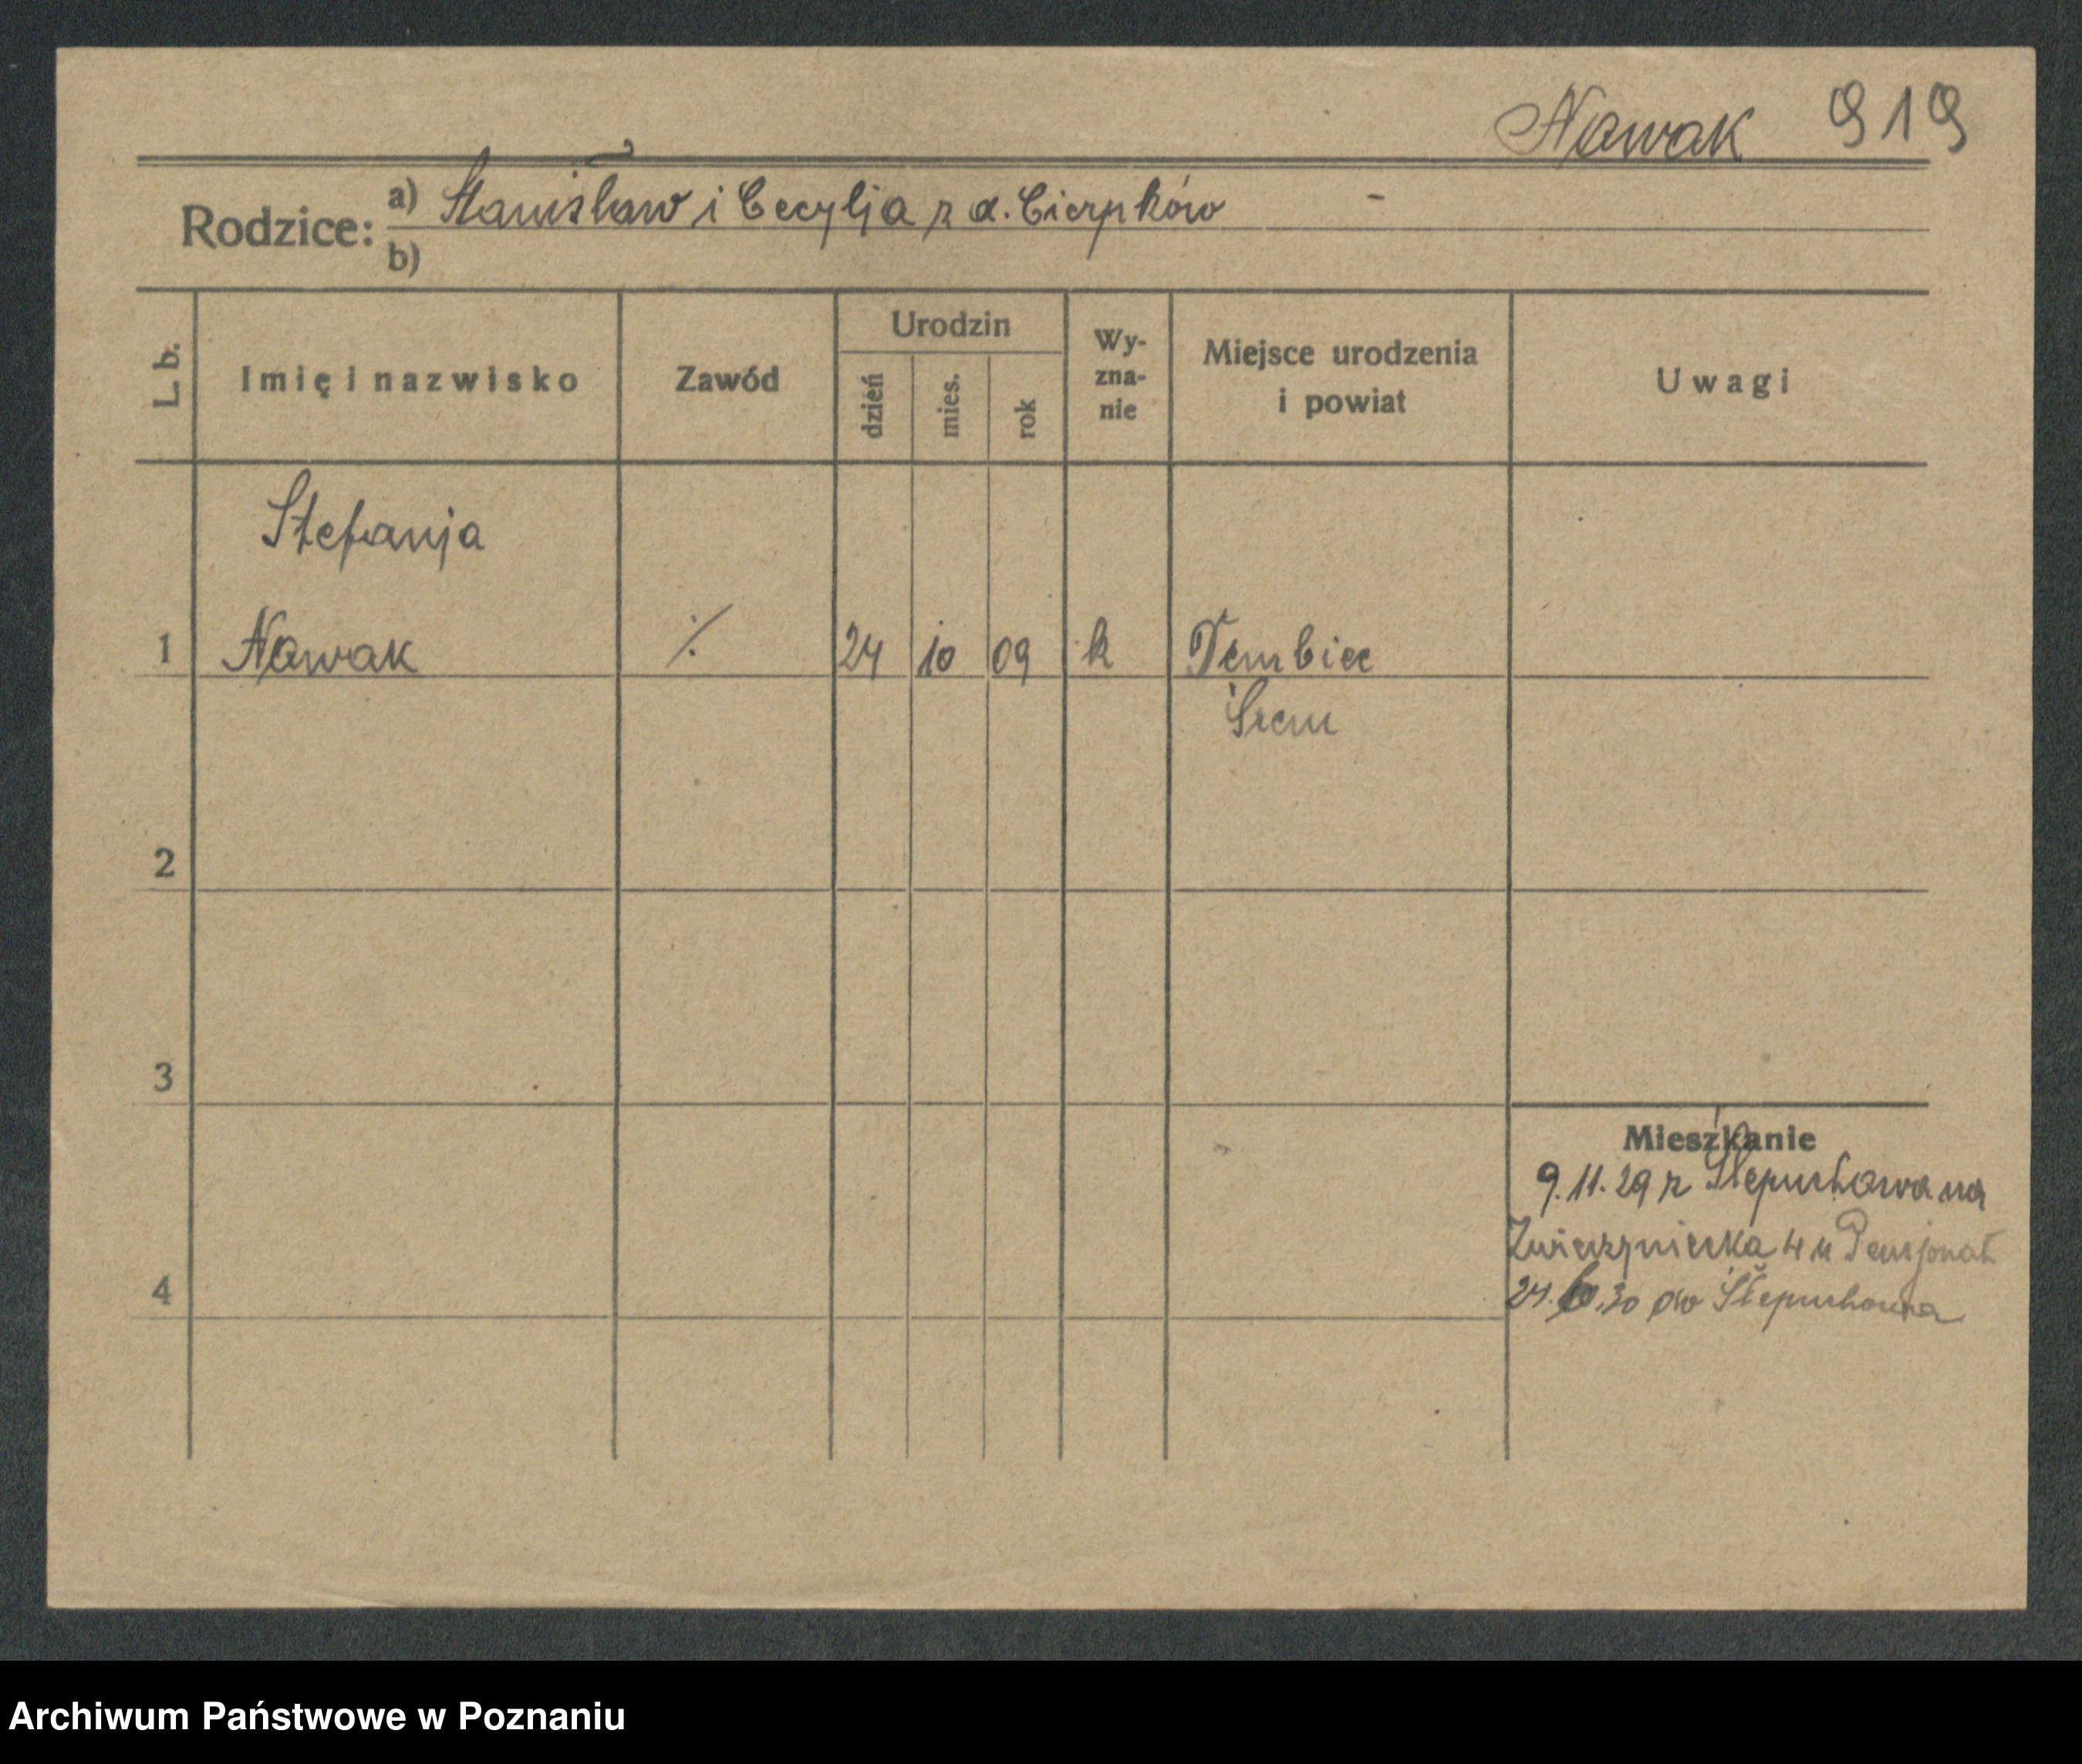 Nowak 919
Rodzice: a) Stanisław i Cecylja z d. Cierpków -
b)
L. b. Imię i nazwisko Zawód Urodzin dzień mies. rok Wy-zna-nie Miejsce urodzenia i powiat Uwagi
Stefanja
1 Nowak ./. 24 10 09 k Tembiec
Śrem
2
3
Mieszkanie
9.11.29 z Ślepuchowa na
Zwierzyniecka 4 u Pensjonat
4 24. 30 do Ślepuchowa
Archiwum Państwowe w Poznaniu